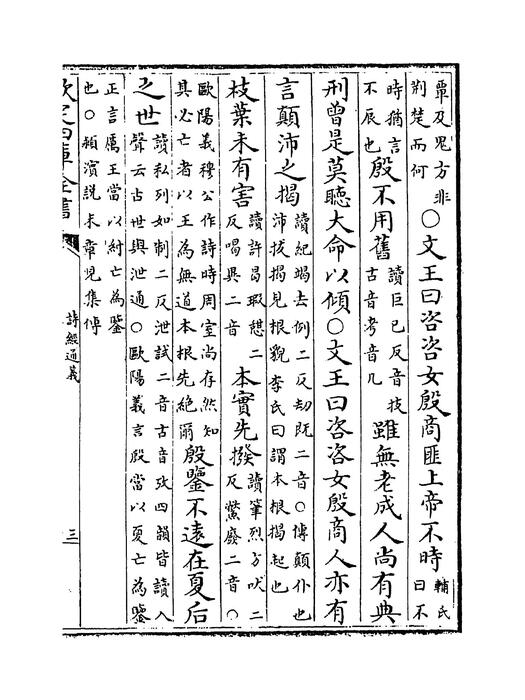 覃及鬼方非
荆楚而何
〇文王曰咨咨女殷商匪上帝不時
輔氏
曰不
時猶言
不辰也
殷不用舊
讀巨已反音技
古音考音几
雖無老成人尚有典
刑曾是莫聽大命以傾〇文王曰咨咨女殷商人亦有
言顛沛之揭
讀紀竭去例二反劫既二音〇傳顛仆也
沛拔揭見根貌李氏曰謂本根揭起也
枝葉未有害
讀許曷瑕憇二
反喝異二音
本實先撥
讀筆烈方吠二
反鷩廢二音〇
歐陽義穆公作詩時周室尚存然知
其必亡者以王為無道本根先絶爾
殷鑒不遠在夏后
之世
讀私列如制二反泄試二音古音攷四韻皆讀入
聲云古世與泄通〇歐陽義言殷當以夏亡為鑒
正言厲王當以紂亡為鑒
也〇潁濱說末章見集傳
欽定四庫全書
詩經通義
三